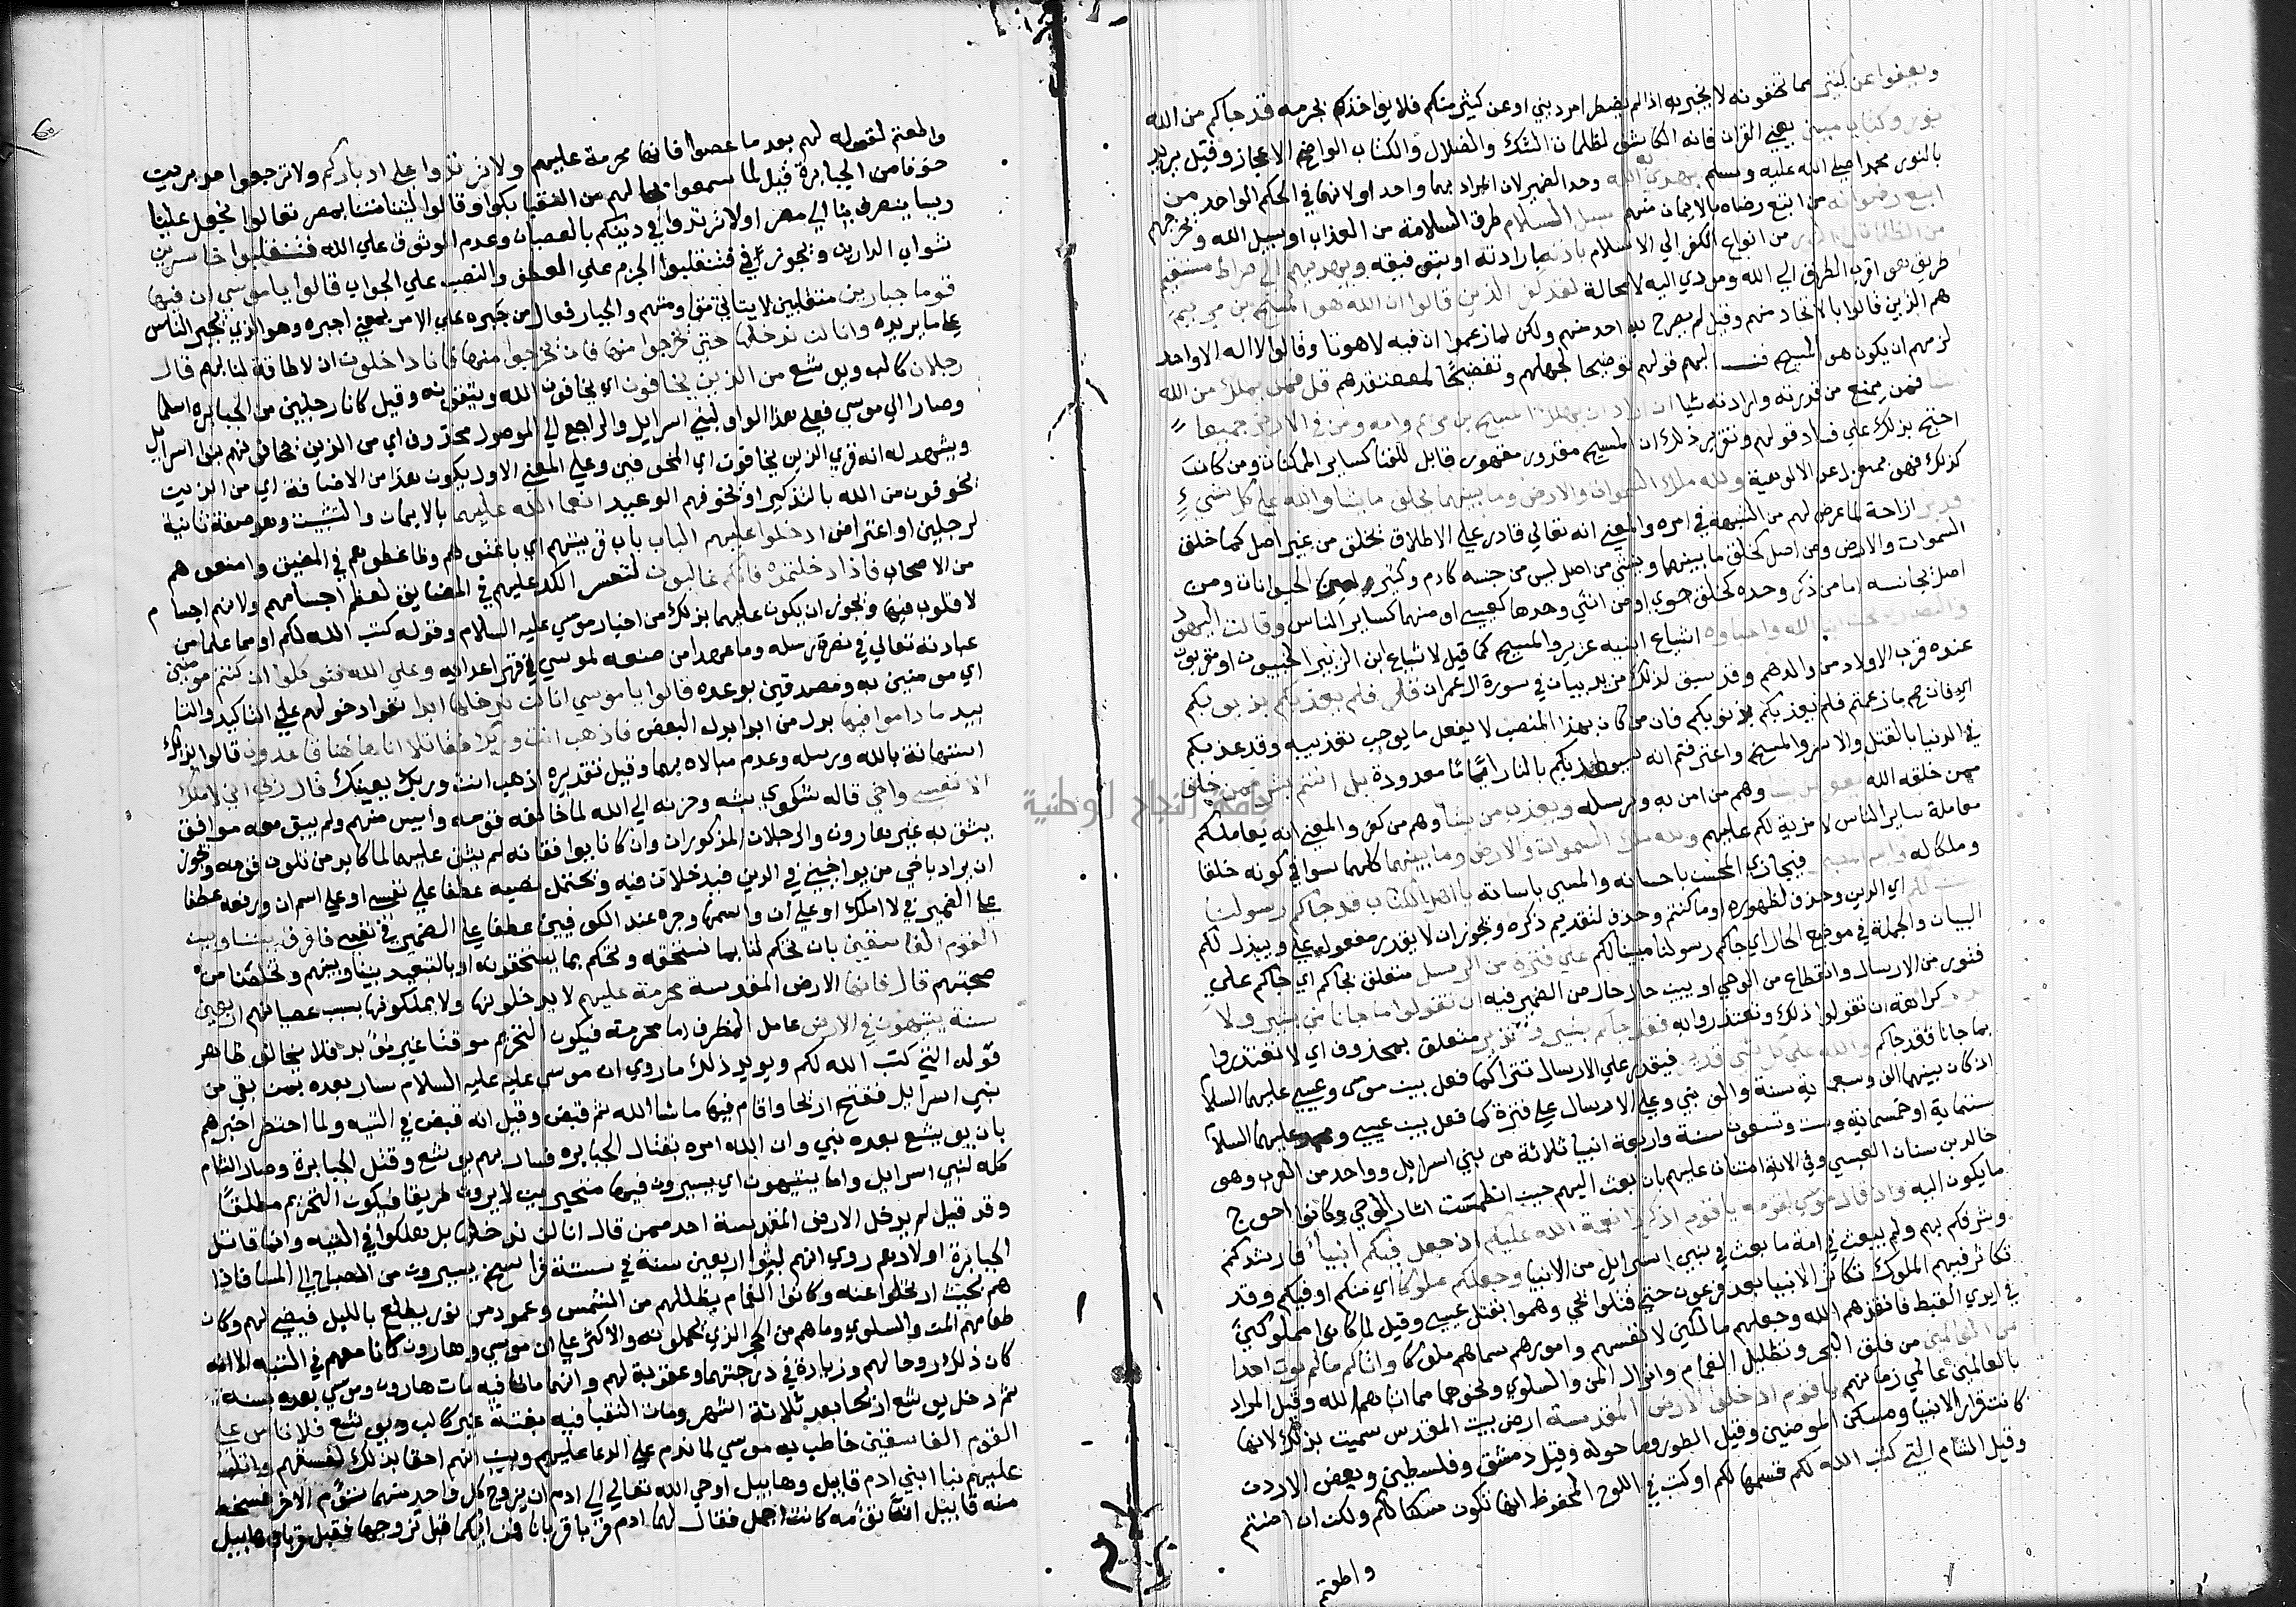 ويعفوا عن كثير مما تخفونه لا يخبر به اذا لم يضطر امر ديني او عن كثير منكم فلا يؤاخذكم بجرمه قد جاكم من الله
نور وكتاب مبين يعني القران فانه الكاشف لظلمات الشك والضلال والكتاب الواضح الاعجاز وقيل يريد
بالنور محمدا صلي الله عليه وسلم يهدي به الله وحد الضمير لان المراد بهما واحد او لانهما في الحكم الواحد من
اتبع رضوانه من اتبع رضاه بالايمان منهم سبل السلام طرق السلامة من العذاب او سبيل الله ويخرجهم
من الظلمات الي النور من انواع الكفر الي الاسلام باذنه بارادته او بتوفيقه ويهديهم الي صراط مستقيم
طريق هو اقرب الطرق الي الله ومودي اليه لا محالة لقد كفر الذين قالوا ان الله هو المسيح بن مريم
هم الذين قالوا بالاتحاد منهم وقيل لم يصرح به احد منهم ولكن لما زعموا ان فيه لاهوتا وقالوا لا اله الا واحد
لزمهم ان يكون هو المسيح فنسب اليهم قولهم توضيحا لجهلهم وتفضيحا لمعتقدهم قل فمن يملك من الله
شيا فمن يمنع من قدرته وارادته شيا ان اراد ان يهلك المسيح بن مريم وامه ومن في الارض جميعا
احتج بذلك علي فساد قولهم وتقرير ذلك ان المسيح مقدور مقهور قابل للفنا كساير الممكنات ومن كان
كذلك فهو بمعزل عن الالوهية ولله ملك السموات والارض وما بينهما يخلق ما يشا والله علي كل شيء
قدير ازاحة لما عرض لهم من الشبهة في امره والمعني انه تعالي قادر علي الاطلاق يخلق من غير اصل كما خلق
السموات والارض ومن اصل كخلق ما بينهما وينشي من اصل ليس من جنسه كادم وكثير من الحيوانات ومن
اصل يجانسه اما من ذكر وحده كخلق حوي او من انثي وحدها كعيسي او منهما كساير الناس وقالت اليهود
والنصاري نحن ابنا الله واحباوه اشياع ابنيه عزير والمسيح كما قيل لاشياع ابن الزبير الحبيبون او مقربون
عنده قرب الاولاد من والدهم وقد سبق لذلك مزيد بيان في سورة ال عمران قل فلم يعذبكم بذنوبكم
اي فان صح ما زعمتم فلم يعذبكم بذنوبكم فان من كان بهذا المنصب لا يفعل ما يوجب تعذيبه وقد عذبكم
في الدنيا بالقتل والاسر والمسخ واعترفتم انه سيعذبكم بالنار اياما معدودة بل انتم بشر ممن خلق
ممن خلقه الله يغفر لمن يشا وهم من امن به وبرسله ويعذب من يشا وهم من كفر والمعني انه يعاملكم
معاملة ساير الناس لا مزية لكم عليهم ولله ملك السموات والارض وما بينهما كلها سوا في كونه خلقا
وملكا له واليه المصير فيجازي المحسن باحسانه والمسي باساته يا اهل الكتاب قد جاكم رسولنا
يبين لكم اي الدين وحذف لظهوره او ما كتمتم وحذف لتقدم ذكره ويجوز ان لا يقدر مفعول علي ويبذل لكم
البيان والجملة في موضع الحال اي جاكم رسولنا مبينا لكم علي فترة من الرسل متعلق بجاكم اي جاكم علي
فتور من الارسال وانقطاع من الوحي او يبين حال من الضمير فيه ان تقولوا ما جانا من بشير ولا
نذير كراهة ان تقولوا ذلك وتعتذروا به فقد جاكم بشير ونذير متعلق بمحذوف اي لا تعتذروا
بما جانا فقد جاكم والله علي كل شي قدير فيقدر علي الارسال تترا كما فعل بين موسي وعيسي عليهما السلام
اذ كان بينهما الف وسبعماية سنة والف نبي وعلي الارسال علي فترة كما فعل بين عيسي ومحمد عليهما السلام
ستماية او خمسماية وست وتسعون سنة واربعة انبيا ثلاثة من بني اسرايل وواحد من العرب وهو
خالد بن سنان العبسي وفي الاية امتنان عليهم بان بعث اليهم حين انطمست اثار الوحي وكانوا احوج
ما يكون اليه واذ قال موسي لقومه يا قوم اذكروا نعمة الله عليكم اذ جعل فيكم انبيا فارشدكم
وشرفكم بهم ولم يبعث في امة ما بعث في بني اسرايل من الانبيا وجعلكم ملوكا اي منكم او فيكم وقد
تكاثر فيهم الملوك تكاثر الانبيا بعد فرعون حتي قتلوا يحي وهموا بقتل عيسي وقيل لما كانوا مملوكين
في ايدي القبط فانقذهم الله وجعلهم مالكين لانفسهم وامورهم سماهم ملوكا واتاكم ما لم يوت احدا
من العالمين من فلق البحر وتظليل الغمام وانزال المن والسلوي ونحوها مما اتاهم الله وقيل المراد
بالعالمين عالمي زمانهم يا قوم ادخلوا الارض المقدسة ارض بيت المقدس سميت بذلك لانها
كانت قرار الانبيا ومسكن المومنين وقيل الطور وما حوله وقيل دمشق وفلسطين وبعض الاردن
وقيل الشام التي كتب الله لكم قسمها لكم او كتب في اللوح المحفوظ انها تكون مسكنا لكم ولكن ان امنتم
واطعتم
واطعتم لقوله لهم بعد ما عصوا فانها محرمة عليهم ولا ترتدوا علي ادباركم ولا ترجعوا مدبرين
خوفا من الجبابرة قيل لما سمعوا حالهم من النقبا بكوا وقالوا ليتنا متنا بمصر تعالوا نجعل علينا
ريسا ينصرف بنا الي مصر او لا ترتدوا في دينكم بالعصيان وعدم الوثوق علي الله فتنقلبوا خاسرين
ثواب الدارين ويجوز في فتنقلبوا الجزم علي العطف والنصب علي الجواب قالوا يا موسي ان فيها
قوما جبارين متغلبين لا يتاتي مقاومتهم والجبار فعال من جبره علي الامر بمعني اجبره وهو الذي يجبر الناس
علي ما يريده وانا لن ندخلها حتي يخرجوا منها فان يخرجوا منها فانا داخلون اذ لا طاقة لنا بهم قال
رجلان كالب ويوشع من الذين يخافون اي يخافون الله ويتقونه وقيل كانا رجلين من الجبابرة اسلما
وصارا الي موسي فعلي هذا الواو لبني اسرايل والراجع الي الموصول محذوف اي من الذين يخافونهم بنوا اسرايل
ويشهد له انه قري الذين يخافون اي المخوفين وعلي المعني الاول يكون هذا من الاخافة اي من الذين
يخوفون من الله بالتذكير او يخوفهم الوعيد انعم الله عليهما بالايمان والتثبيت وهو صفة ثانية
لرجلين او اعتراض ادخلوا عليهم الباب باب قريتهم اي باغتوهم وضاغطوهم في المضيق وامنعوهم
من الاصحار فاذا دخلتموه فانكم غالبون لتعسر الكر عليهم في المضايق لعظم اجسامهم ولانهم اجسام
لا قلوب فيها ويجوز ان يكون علمهما بذلك من اخبار موسي عليه السلام وقوله كتب الله لكم او مما علما من
عادته تعالي في نصرة رسله وما عهدا من صنعه لموسي في قهر اعدايه وعلي الله فتوكلوا ان كنتم مومنين
اي مومنين به ومصدقين بوعده قالوا يا موسي انا لن ندخلها ابدا نفوا دخولهم علي التاكيد والتا
بيد ما داموا فيها بدل من ابدا بدل البعض فاذهب انت وربك فقاتلا انا هاهنا قاعدون قالوا ذلك
استهانة بالله ورسله وعدم مبالاه بهما وقيل تقديره اذهب انت وربك يعينك قال رب اني لا املك
الا نفسي واخي قاله شكوي بثه وحزنه الي الله لما خالفه قومه وايس منهم ولم يبق معه موافق
يثق به غير هارون والرجلان المذكوران وان كانا يوافقانه لم يثق عليهما لما كابد من تلون قومه ويجوز
ان يراد باخي من يواخيني في الدين فيدخلان فيه ويحتمل نصبه عطفا علي نفسي او علي اسم ان ورفعه عطفا
علي الضمير في لا املك او علي ان واسمها وجره عند الكوفيين عطفا علي الضمير في نفسي فافرق بيننا وبين
القوم الفاسقين بان تحكم لنا بما نستحقه وتحكم بما يستحقونه او بالتبعيد بيننا وبينهم وتخلصنا من
صحبتهم قال فانها الارض المقدسة محرمة عليهم لا يدخلونها ولا يملكونها بسبب عصيانهم اربعين
سنة يتيهون في الارض عامل الظرف اما محرمة فيكون التحريم موقتا غير موبد فلا يخالف ظاهر
قوله التي كتب الله لكم ويويد ذلك ما روي ان موسي عليه السلام سار بعده بمن بقي من
بني اسرايل ففتح اريحا واقام فيها ما شا الله ثم قبض وقيل انه قبض في التيه ولما احتضر اخبرهم
بان يوشع بعده نبي وان الله امره بقتال الجبابره فسار بهم يوشع وقتل الجبابرة وصار الشام
كله لبني اسرايل واما يتيهون اي يسيرون فيها متحيرين لا يرون طريقا فيكون التحريم مطلقا
وقد قيل لم يدخل الارض المقدسة احد ممن قال انا لن ندخلها بل هلكوا في التيه وانما قاتل
الجبابرة اولادهم روي انهم لبثوا اربعين سنة في ستة فراسخ يسيرون من الصباح الي المسا فاذا
هم بحيث ارتحلوا عنه وكانوا الغمام يظللهم من الشمس وعمود من نور يطلع بالليل فيضي لهم وكان
طعامهم المن والسلوي وماهم من الحجر الذي يحملونه والاكثر علي ان موسي وهارون كانا معهم في التيه الا انه
كان ذلك روحا لهم وزيادة في درجتهما وعقوبة لهم وانهما ماتا فيه مات هارون وموسي بعده بسنة
ثم دخل يوشع اريحا بعد ثلاثة اشهر ومات النقبا فيه بغتة غير كالب ويوشع فلا تاس علي
القوم الفاسقين خاطب به موسي لما ندم علي الدعا عليهم وبين انهم احقا بذلك لفسقهم واتل
عليهم نبا ابني ادم قابيل وهابيل اوحي الله تعالي الي ادم ان يزوج كل واحد منهما توم الاخر فسخط
منه قابيل لان تومه كانت اجمل فقال لهما ادم قربا قربانا فمن ايكما قبل تزوجها فقبل قربان هابيل
جامعة النجاح الوطنية